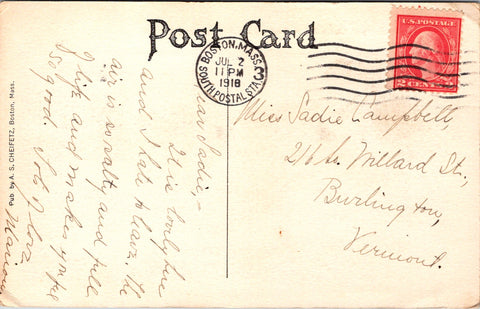 Post Card
BOSTON, MASS.
JUL 2
11 PM
1918
SOUTH POSTAL STA.
3
U.S. POSTAGE
2 CENTS 2
Miss Sadie Campbell,
216 So. Willard St.,
Burlington,
Vermont.
Dear Sadie,-
It is lovely here
and I hate to leave. The
air is so salty and full
of life and makes you feel
so good. Lots of love
Marion
Pub by A. S. CHEIFETZ, Boston, Mass.